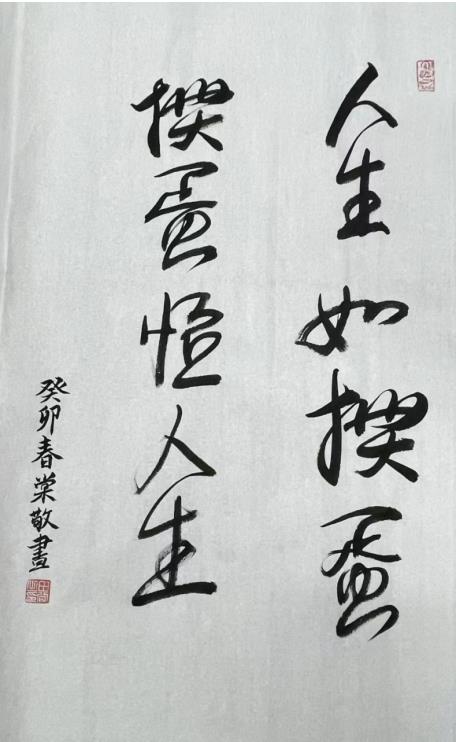 人生如掼蛋
掼蛋悟人生
癸卯春棠敬